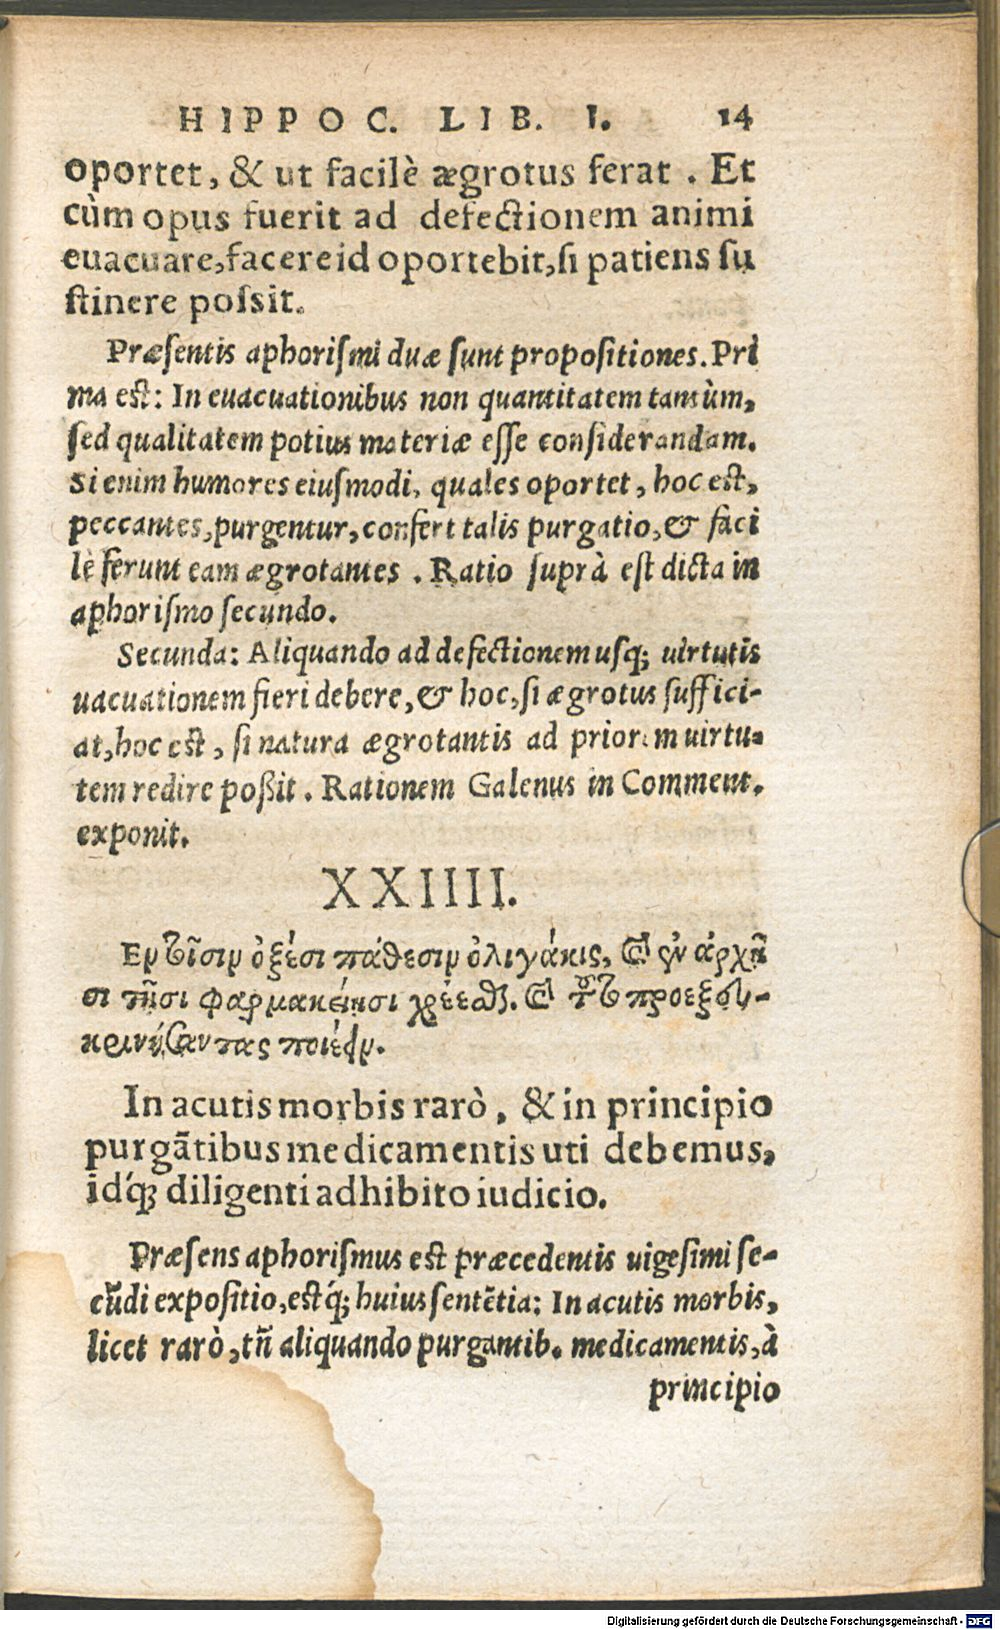 HIPPOC. LIB. I. 14
oportet, & ut facilè ægrotus ferat. Et
cùm opus fuerit ad defectionem animi
euacuare, facere id oportebit, si patiens su
stinere possit.
Præsentis aphorismi duæ sunt propositiones. Pri
ma est: In euacuationibus non quantitatem tantùm,
sed qualitatem potius materiæ esse considerandam.
Si enim humores eiusmodi, quales oportet, hoc est,
peccantes, purgentur, confert talis purgatio, & faci
lè ferunt eam ægrotantes. Ratio suprà est dicta in
aphorismo secundo.
Secunda: Aliquando ad defectionem usq; uirtutis
uacuationem fieri debere, & hoc, si ægrotus suffici-
at, hoc est, si natura ægrotantis ad priorem uirtu-
tem redire poßit. Rationem Galenus in Comment.
exponit.
XXIIII.
Εν τοῖσιν ὀξέσι πάθεσιν ὀλιγάκις, καὶ ἐν ἀρχῆ
σι τῇσι φαρμακείῃσι χρέεσθαι. καὶ τοῦτο προεξευ-
κρινήσαντας ποιέειν.
In acutis morbis rarò, & in principio
purgātibus medicamentis uti debemus,
idq́; diligenti adhibito iudicio.
Præsens aphorismus est præcedentis uigesimi se-
cūdi expositio, estq́; huius sentētia: In acutis morbis,
licet rarò, tñ aliquando purgantib. medicamentis, à
principio
Digitalisierung gefördert durch die Deutsche Forschungsgemeinschaft - DFG